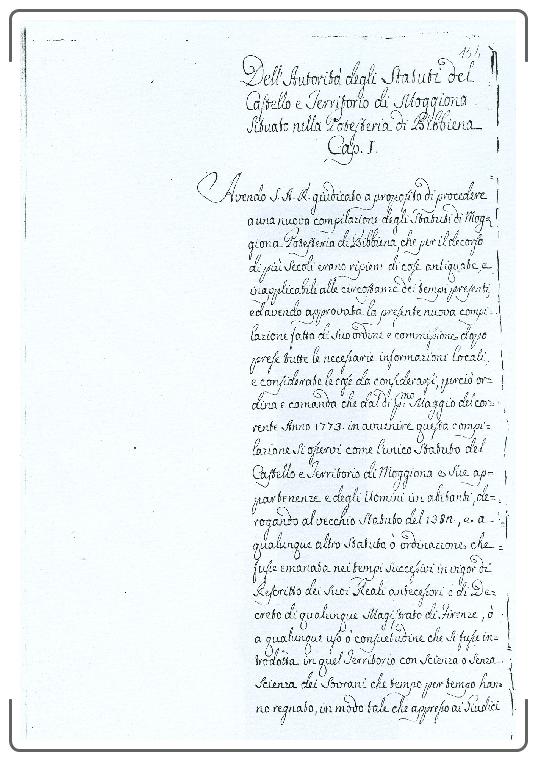 Dell'Autorità degli Statuti del
Castello e Territorio di Moggiona
Situato nella Potesteria di Bibbiena
Cap. I.
Avendo S. A. R. giudicato a proposito di procedere
a una nuova compilazione degli Statuti di Mog=
giona Potesteria di Bibbiena, che per il decorso
di più Secoli erano ripieni di cose antiquate, e
inapplicabili alle circostanze dei tempi presenti,
ed avendo approvata la presente nuova compi=
lazione fatta di Suo ordine e commissione dopo
prese tutte le necessarie informazioni locali,
e considerate le cose da considerarsi, perciò or=
dina e comanda che dal dì p.mo Maggio del cor=
rente Anno 1773. in avvenire questa compi=
lazione Si osservi come l'unico Statuto del
Castello e Territorio di Moggiona e Sue ap=
partenenze e degli Uomini in abitanti, de=
rogando al vecchio Statuto del e a
qualunque altro Statuto ò ordinazione che
fusse emanata nei tempi Successivi in vigor di
Rescritto dei Suoi Reali antecessori e di De=
creto di qualunque Magistrato di Firenze, ò
a qualunque uso ò consuetudine che Si fusse in=
trodotta in quel Territorio con Scienza o Senza
Scienza dei Sovrani che tempo per tempo han=
no regnato, in modo tale che appresso ai Giudici